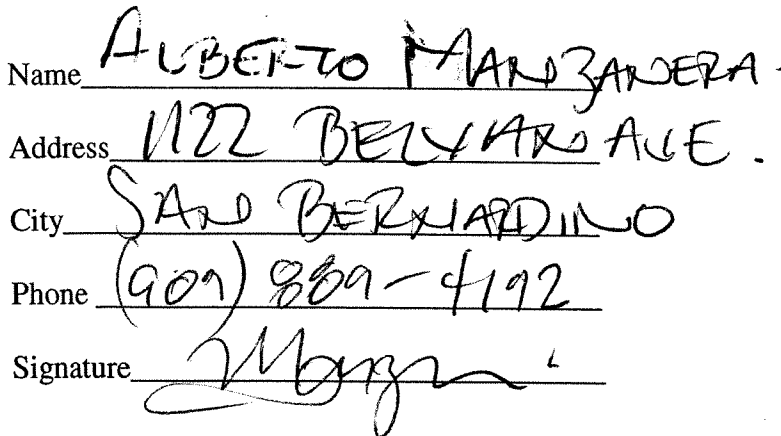 Name ALBERTO MANZANERA.
Address 1122 AVE.
City SAN BERNARDINO
Phone (909) 889-4192
Signature